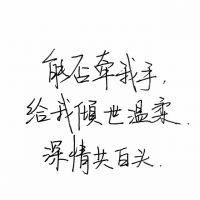 能否牵我手,
给我倾世温柔.
深情共白头.